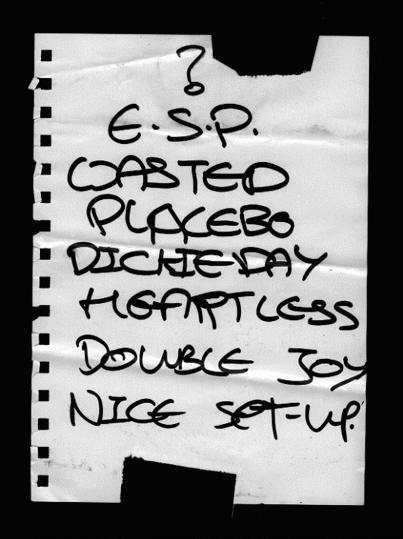 ?
E.S.P.
WASTED
PLACEBO
DICKIE DAY
HEARTLESS
DOUBLE JOY
NICE SET-UP.